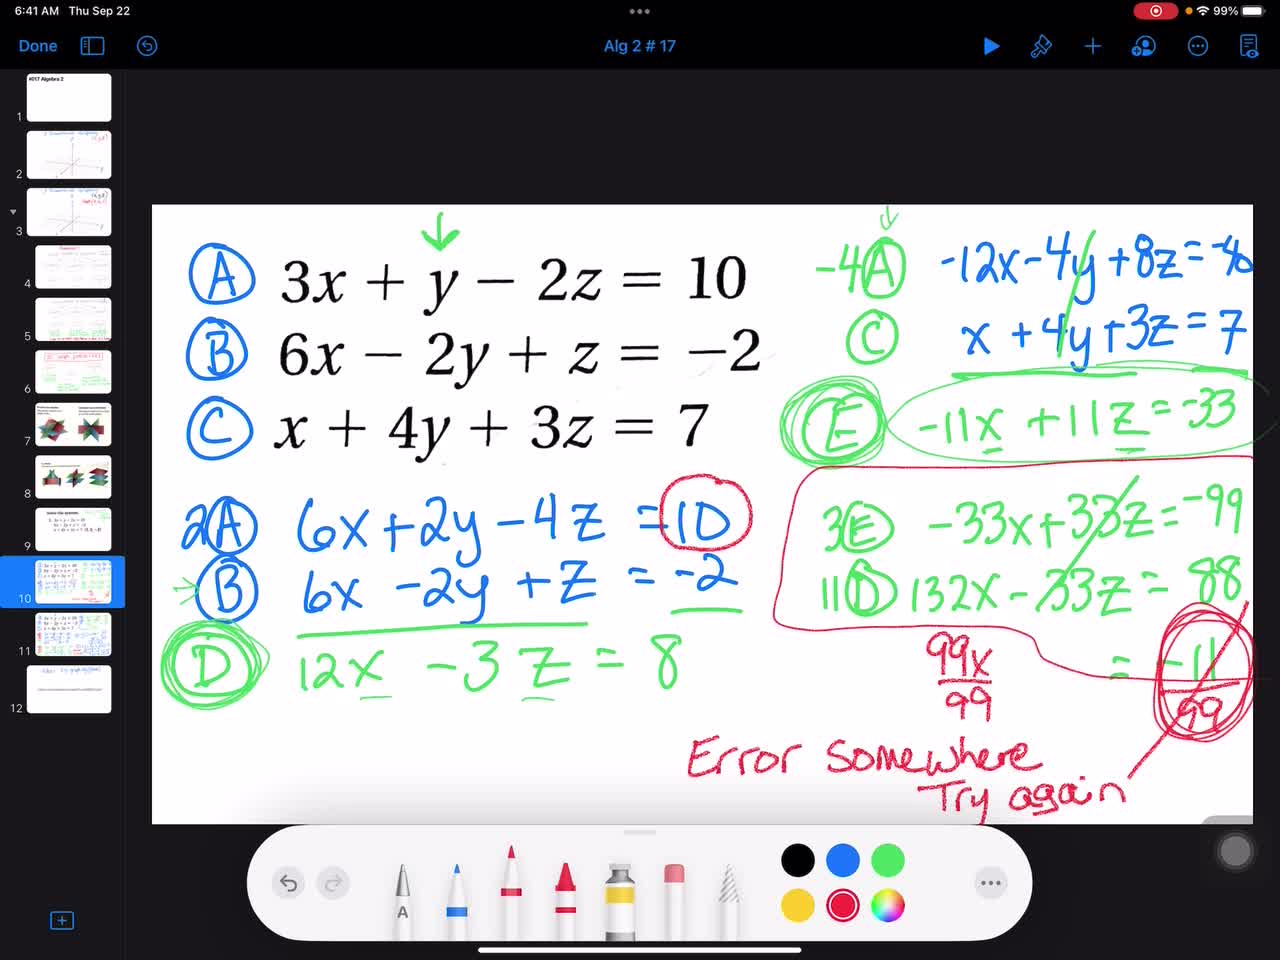 6:41 AM Thu Sep 22
99%
Done
Alg 2 # 17
1
#017 Algebra 2
2
3
4
5
6
7
8
9
10
11
12
A 3x + y − 2z = 10
B 6x − 2y + z = −2
C x + 4y + 3z = 7
2A 6x + 2y − 4z = 10
B 6x − 2y + z = −2
D 12x − 3z = 8
−4A −12x − 4y + 8z = −40
C x + 4y + 3z = 7
E −11x + 11z = −33
3E −33x + 33z = −99
11D 132x − 33z = 88
99x = −11
99 99
Error Somewhere
Try again
A